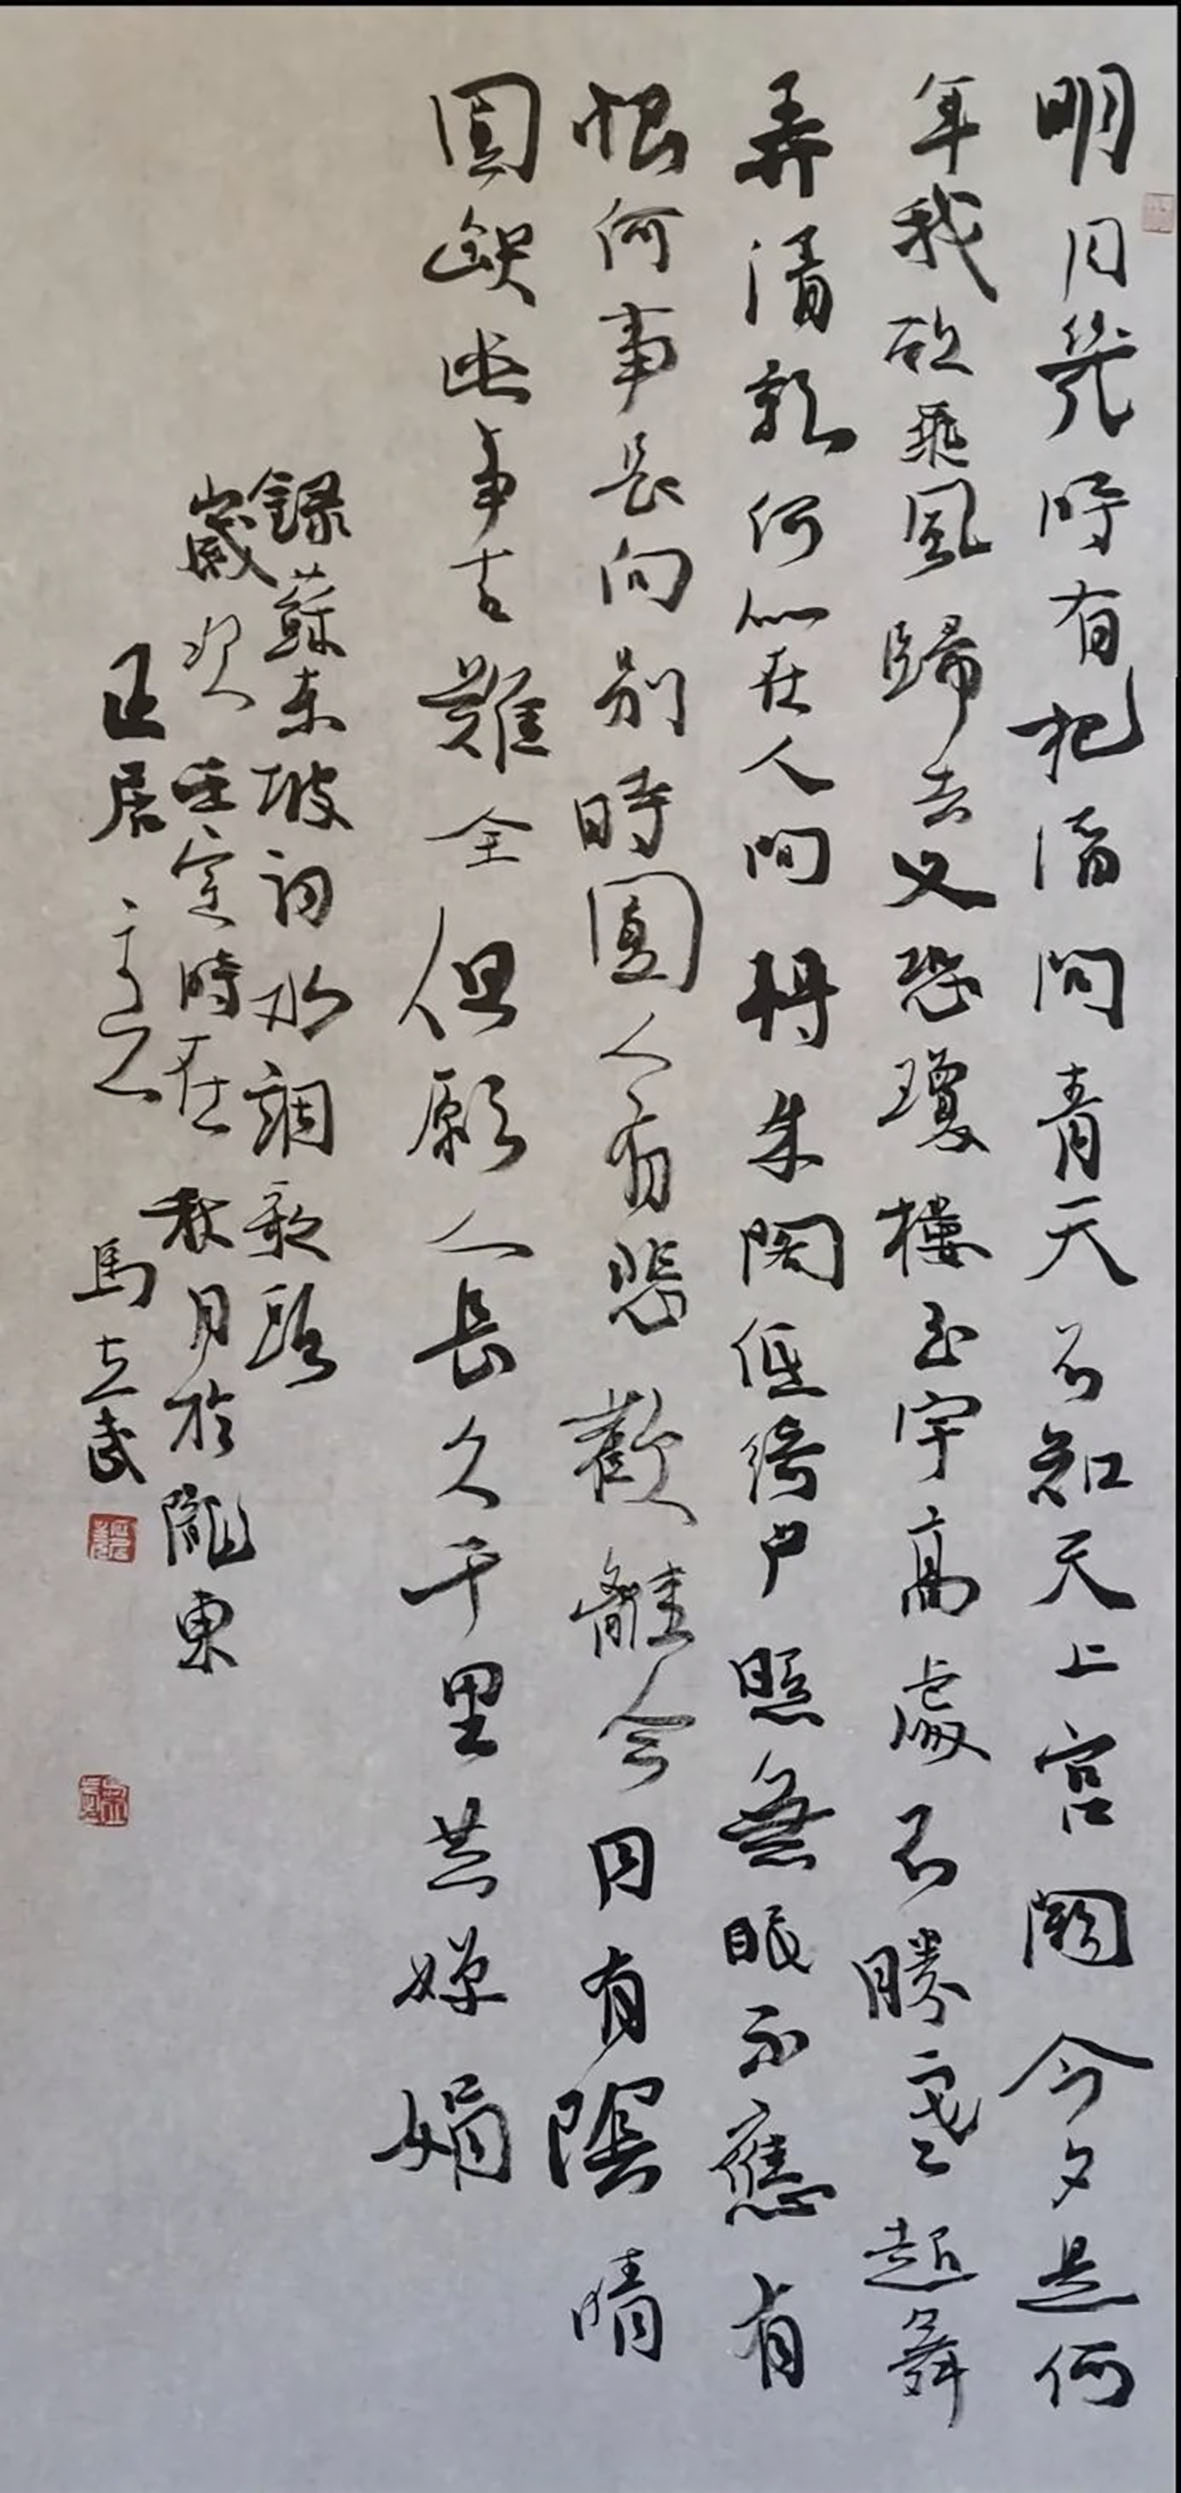 明月幾時有把酒問青天不知天上宮闕今夕是何
年我欲乘風歸去又恐瓊樓玉宇高處不勝寒起舞
弄清影何似在人間轉朱閣低綺戶照無眠不應有
恨何事長向別時圓人有悲歡離合月有陰晴
圓缺此事古難全但願人長久千里共嬋娟
錄蘇東坡詞水調歌頭
歲次壬寅時在秋月於隴東
馬立武